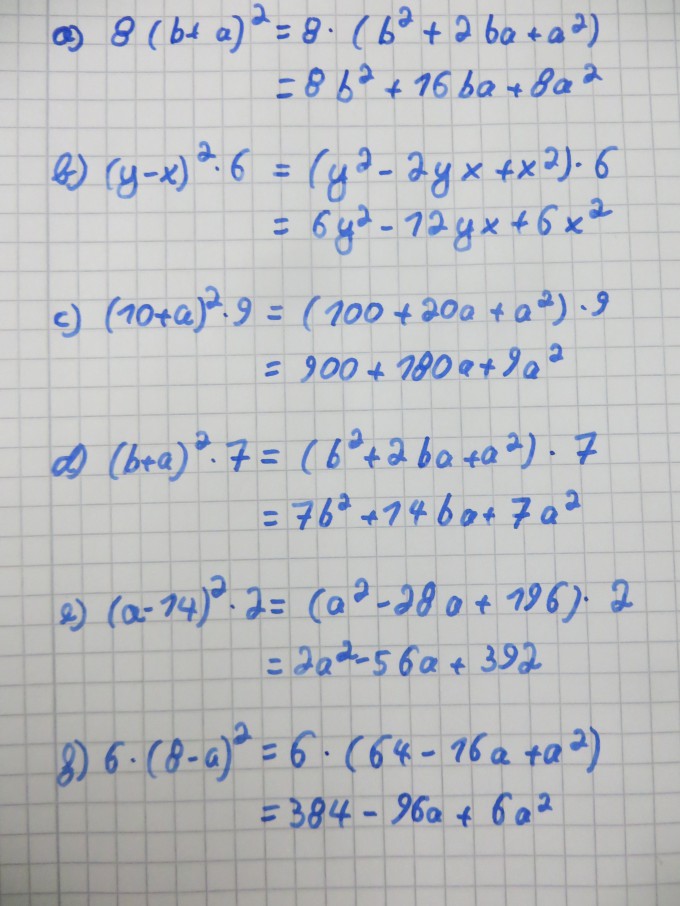 a) 8 (b+ a)² = 8 · (b² + 2 ba + a²)
= 8 b² + 16 ba + 8a²
b) (y-x)² · 6 = (y² - 2y x + x²) · 6
= 6y² - 12 y x + 6 x²
c) (10+a)² · 9 = (100 + 20a + a²) · 9
= 900 + 180a + 9a²
d) (b+a)² · 7 = (b² + 2 ba + a²) · 7
= 7b² + 14 ba + 7a²
e) (a - 14)² · 2 = (a² - 28 a + 196) · 2
= 2a² - 56a + 392
f) 6 · (8 - a)² = 6 · (64 - 16a + a²)
= 384 - 96a + 6a²